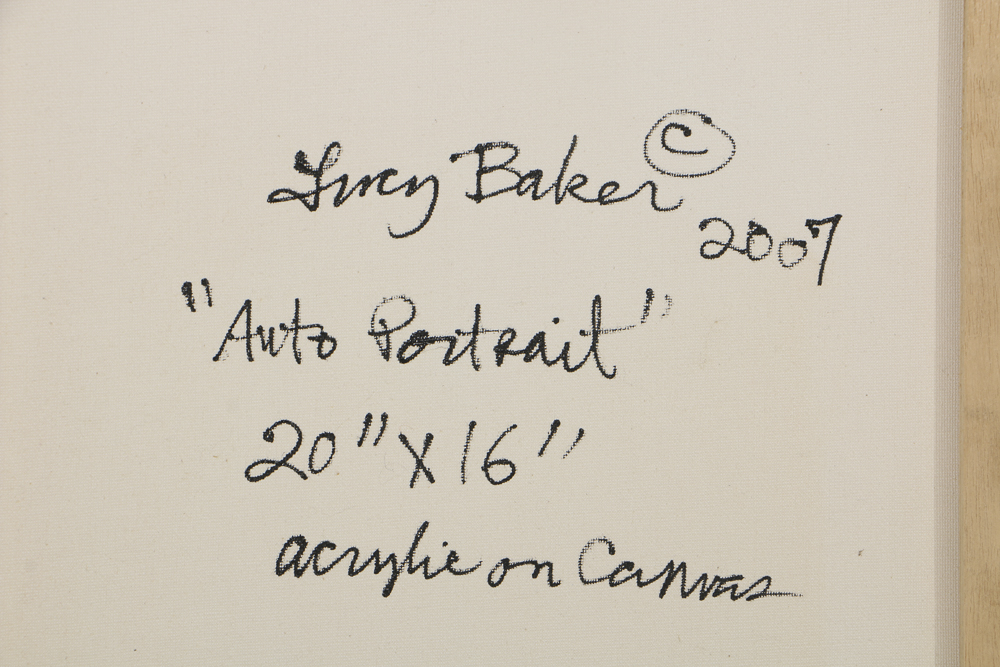 Lucy Baker ©
2007
"Auto Portrait"
20" X 16"
acrylic on Canvas